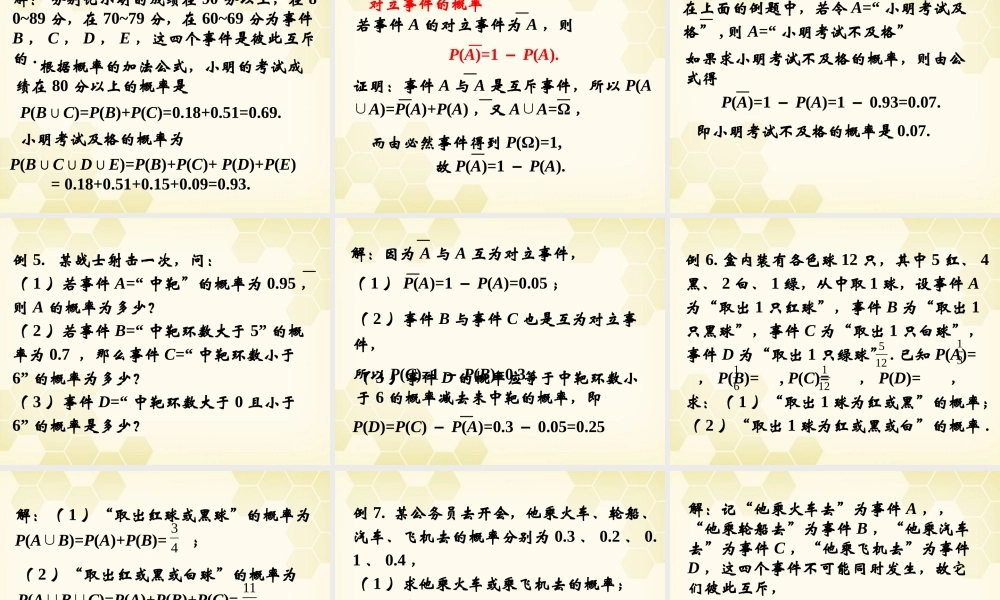 解：分别记小明的成绩在 90 分以上，在 8
0~89 分，在 70~79 分，在 60~69 分为事件
B ， C ， D ， E ，这四个事件是彼此互斥
的 .
根据概率的加法公式，小明的考试成
绩在 80 分以上的概率是
P(B∪C)=P(B)+P(C)=0.18+0.51=0.69.
小明考试及格的概率为
P(B∪C∪D∪E)=P(B)+P(C)+ P(D)+P(E)
= 0.18+0.51+0.15+0.09=0.93.
对立事件的概率
若事件 A 的对立事件为 A ，则
P(A)=1 – P(A).
证明：事件 A 与 A 是互斥事件，所以 P(A
∪A)=P(A)+P(A) ，又 A∪A=Ω ，
而由必然事件得到 P(Ω)=1,
故 P(A)=1 – P(A).
在上面的例题中，若令 A=“ 小明考试及
格” ，则 A=“ 小明考试不及格”
如果求小明考试不及格的概率，则由公
式得
P(A)=1 – P(A)=1 – 0.93=0.07.
即小明考试不及格的概率是 0.07.
例 5. 某战士射击一次，问：
（ 1 ）若事件 A=“ 中靶”的概率为 0.95 ，
则 A 的概率为多少？
（ 2 ）若事件 B=“ 中靶环数大于 5” 的概
率为 0.7 ，那么事件 C=“ 中靶环数小于
6” 的概率为多少？
（ 3 ）事件 D=“ 中靶环数大于 0 且小于
6” 的概率是多少？
解：因为 A 与 A 互为对立事件，
（ 1 ） P(A)=1 – P(A)=0.05 ；
（ 2 ）事件 B 与事件 C 也是互为对立事
件，
所以 P(C)=1 – P(B)=0.3 ；
（ 3 ）事件 D 的概率应等于中靶环数小
于 6 的概率减去未中靶的概率，即
P(D)=P(C) – P(A)=0.3 – 0.05=0.25
例 6. 盒内装有各色球 12 只，其中 5 红、 4
黑、 2 白、 1 绿，从中取 1 球，设事件 A
为“取出 1 只红球”，事件 B 为“取出 1
只黑球”，事件 C 为“取出 1 只白球”，
事件 D 为“取出 1 只绿球” . 已知 P(A)= 5/12
， P(B)= 1/3 , P(C)= 1/6 ， P(D)= 1/12 ，
求：（ 1 ）“取出 1 球为红或黑”的概率；
（ 2 ）“取出 1 球为红或黑或白”的概率 .
解：（ 1 ）“取出红球或黑球”的概率为
P(A∪B)=P(A)+P(B)= 3/4 ；
（ 2 ）“取出红或黑或白球”的概率为
P(A∪B∪C)=P(A)+P(B)+P(C)= 11
例 7. 某公务员去开会，他乘火车、轮船、
汽车、飞机去的概率分别为 0.3 、 0.2 、 0.
1 、 0.4 ，
（ 1 ）求他乘火车或乘飞机去的概率；
解：记“他乘火车去”为事件 A ，，
“他乘轮船去”为事件 B ，“他乘汽车
去”为事件 C ，“他乘飞机去”为事件
D ，这四个事件不可能同时发生，故它
们彼此互斥，